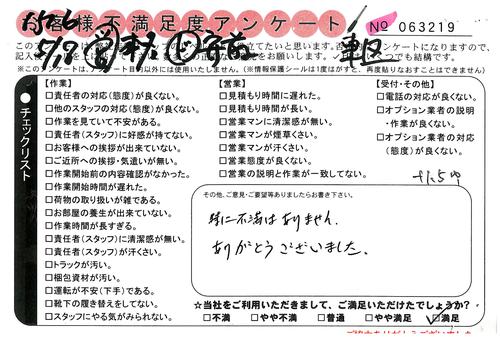 お客様不満足度アンケート
No 063219
※このアンケートは、アンケート目的以外には使用いたしません。(※情報保護シールは1度はがすと、再度貼りなおすことはできません)
チェックリスト
【作業】
□責任者の対応(態度)が良くない。
□他のスタッフの対応(態度)が良くない。
□作業を見ていて不安がある。
□責任者(スタッフ)に好感が持てない。
□お客様への挨拶が出来ていない。
□ご近所への挨拶・気遣いが無い。
□作業開始前の内容確認がなかった。
□作業開始時間が遅れた。
□荷物の取り扱いが雑である。
□お部屋の養生が出来ていない。
□作業時間が長すぎる。
□責任者(スタッフ)に清潔感が無い。
□責任者(スタッフ)が汗くさい。
□トラックが汚い。
□梱包資材が汚い。
□運転が不安(下手)である。
□靴下の履き替えをしてない。
□スタッフにやる気がみられない。
【営業】
□見積もり時間に遅れた。
□見積もり時間が長い。
□営業マンに清潔感が無い。
□営業マンが煙草くさい。
□営業マンが汗くさい。
□営業態度が良くない。
□営業の説明と作業が一致してない。
【受付・その他】
□電話の対応が良くない。
□オプション業者の説明
・作業が良くない。
□オプション業者の対応
(態度)が良くない。
その他、ご意見・ご要望等ありましたらお書き下さい。
特に不満はありません。
ありがとうございました。
☆当社をご利用いただきまして、ご満足いただけたでしょうか?
□不満 □やや不満 □普通 □やや満足 □満足